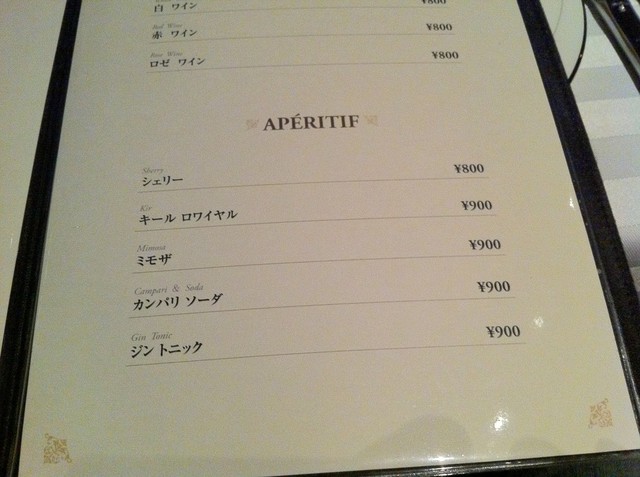 白 ワイン ¥800
Red Wine
赤 ワイン ¥800
Rose Wine
ロゼ ワイン ¥800
APÉRITIF
Sherry
シェリー ¥800
Kir
キール ロワイヤル ¥900
Mimosa
ミモザ ¥900
Campari & Soda
カンパリ ソーダ ¥900
Gin Tonic
ジン トニック ¥900